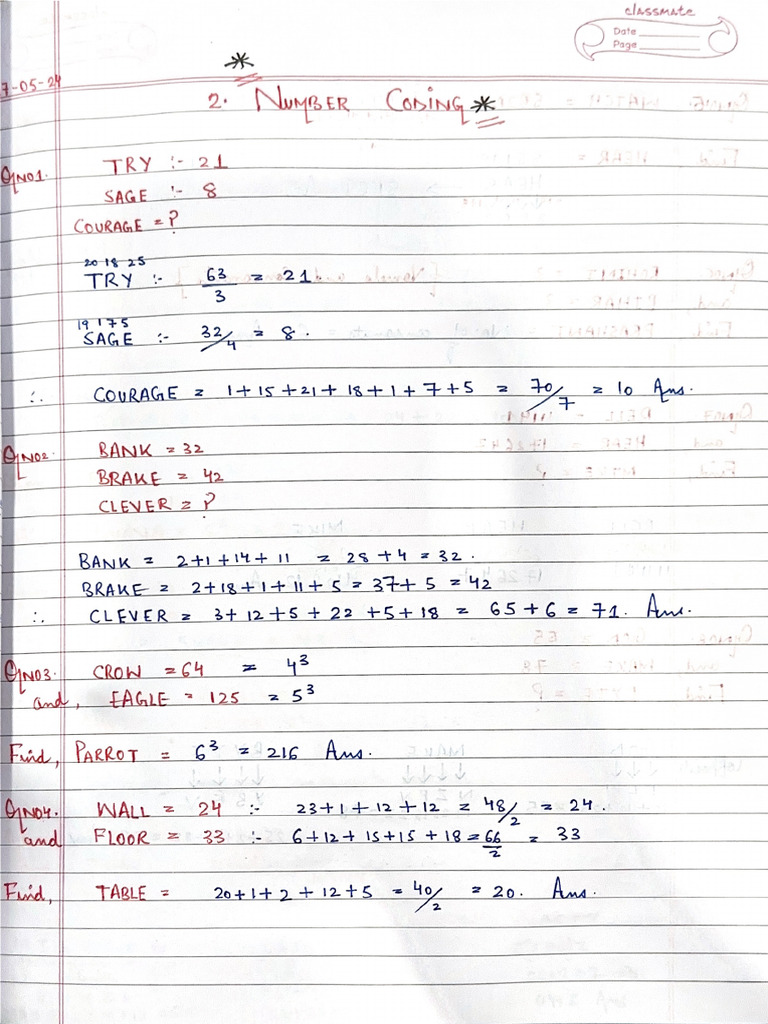 classmate
Date
Page
7-05-24
2. NUMBER CODING
Q.NO1. TRY :- 21
SAGE :- 8
COURAGE = ?
20 18 25
TRY :- 63/3 = 21
19 1 7 5
SAGE :- 32/4 = 8.
∴ COURAGE = 1+15+21+18+1+7+5 = 70/7 = 10 Ans.
Q.NO2. BANK = 32
BRAKE = 42
CLEVER = ?
BANK = 2+1+14+11 = 28+4 = 32.
BRAKE = 2+18+1+11+5 = 37+5 = 42
∴ CLEVER = 3+12+5+22+5+18 = 65+6 = 71. Ans.
Q.NO3. CROW = 64 = 4³
and, EAGLE = 125 = 5³
Find, PARROT = 6³ = 216 Ans.
Q.NO4. WALL = 24 :- 23+1+12+12 = 48/2 = 24.
and FLOOR = 33 :- 6+12+15+15+18 = 66/2 = 33
Find, TABLE = 20+1+2+12+5 = 40/2 = 20. Ans.